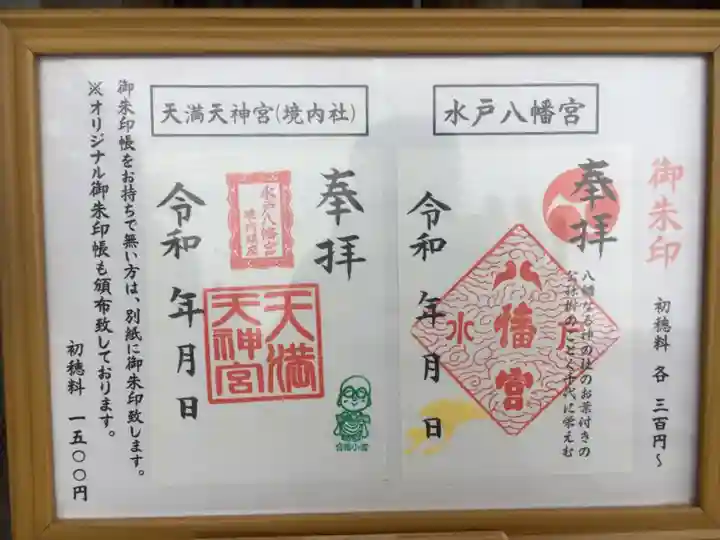 御朱印
初穂料 各 三百円~
水戸八幡宮
奉拝
八幡なる神の社のお葉付きの
公孫樹のごとく千代に栄えむ
水戸
八幡宮
令和 年 月 日
天満天神宮(境内社)
奉拝
水戸八幡宮
境内鎮座
天満
天神宮
令和 年 月 日
御朱印帳をお持ちで無い方は、別紙に御朱印致します。
※オリジナル御朱印帳も頒布致しております。
初穂料 一五〇〇円